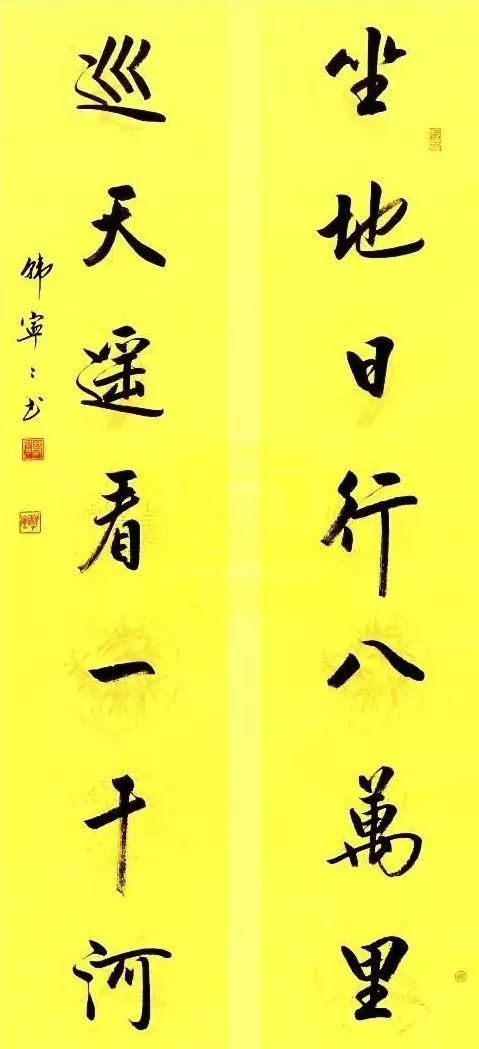 坐地日行八萬里
巡天遥看一千河
韩寧寧书